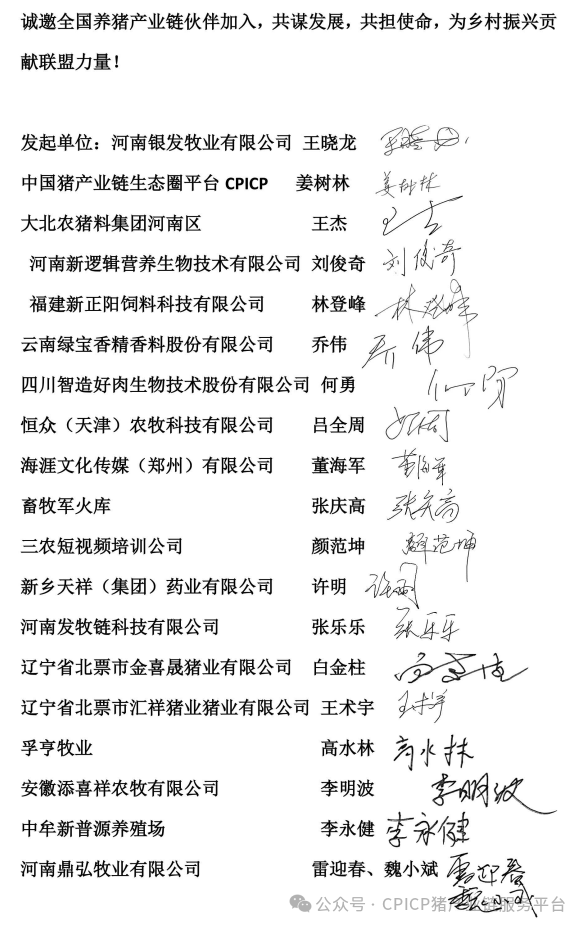 诚邀全国养猪产业链伙伴加入，共谋发展，共担使命，为乡村振兴贡
献联盟力量！
发起单位：河南银发牧业有限公司 王晓龙
中国猪产业链生态圈平台 CPICP 姜树林 姜树林
大北农猪料集团河南区 王杰
河南新逻辑营养生物技术有限公司 刘俊奇 刘俊奇
福建新正阳饲料科技有限公司 林登峰 林登峰
云南绿宝香精香料股份有限公司 乔伟 乔伟
四川智造好肉生物技术股份有限公司 何勇
恒众（天津）农牧科技有限公司 吕全周
海涯文化传媒（郑州）有限公司 董海军 董海军
畜牧军火库 张庆高 张庆高
三农短视频培训公司 颜范坤 颜范坤
新乡天祥（集团）药业有限公司 许明 许明
河南发牧链科技有限公司 张乐乐 张乐乐
辽宁省北票市金喜晟猪业有限公司 白金柱
辽宁省北票市汇祥猪业猪业有限公司 王术宇
孚亨牧业 高水林 高水林
安徽添喜祥农牧有限公司 李明波 李明波
中牟新普源养殖场 李永健 李永健
河南鼎弘牧业有限公司 雷迎春、魏小斌 雷迎春
公众号 · CPICP猪产业链服务平台